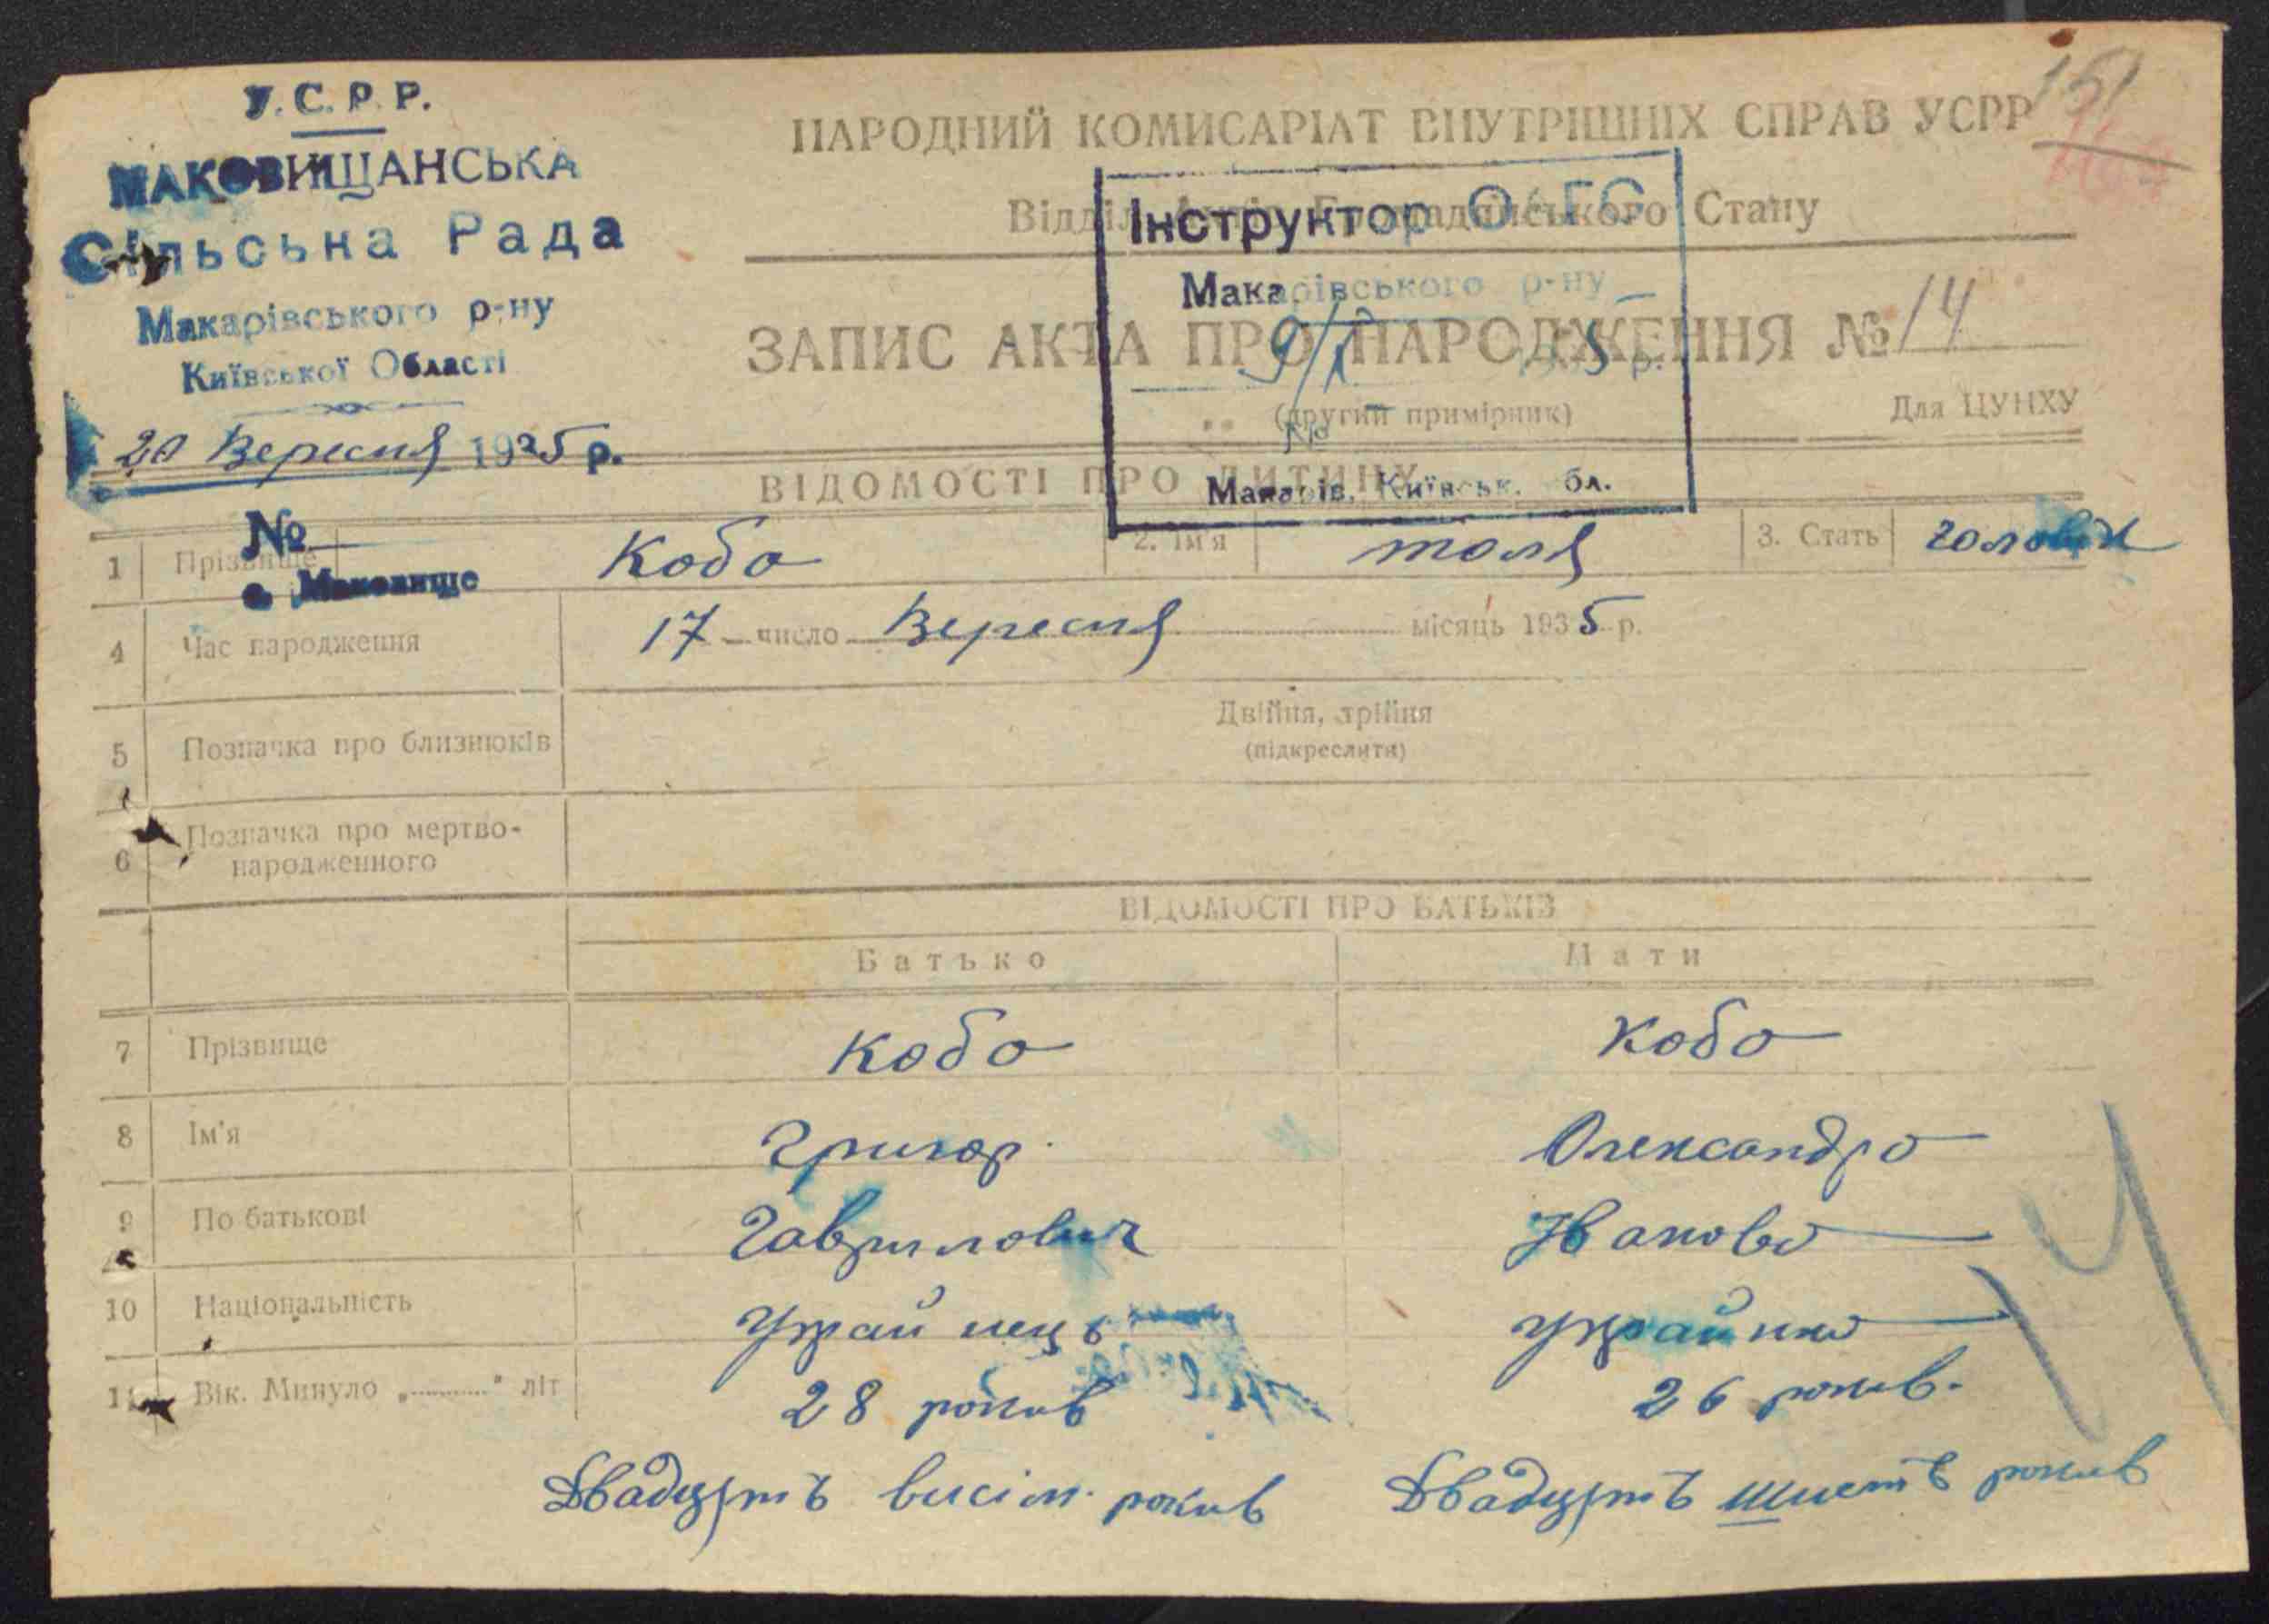 У.С.Р.Р.
МАКОВИЩАНСЬКА
Сільська Рада
Макарівського р-ну
Київської Області
20 Вересня 1935 р.
№
с. Маковище
151
НАРОДНИЙ КОМІСАРІАТ ВНУТРІШНІХ СПРАВ УСРР
Відділ Актів Громадянського Стану
Інструктор ОАГС
Макарівського р-ну
9/X 1935 р.
№
Макарів, Київськ. обл.
ЗАПИС АКТА ПРО НАРОДЖЕННЯ № 14
(другий примірник)
Для ЦУНХУ
ВІДОМОСТІ ПРО ДИТИНУ
1 Прізвище Коба 2. Ім'я толя 3. Стать чоловік
4 Час народження 17 число Вересня місяць 1935 р.
5 Позначка про близнюків Двійня, трійня
(підкреслити)
6 Позначка про мертво-
народженного
ВІДОМОСТІ ПРО БАТЬКІВ
Батько Мати
7 Прізвище Коба Коба
8 Ім'я Григор Олександра
9 По батькові Гаврилович Іванова
10 Національність Украйнець украйнка
11 Вік. Минуло „ " літ 28 рокив 26 рокив.
Двадцять висім рокив Двадцять шисть рокив
14